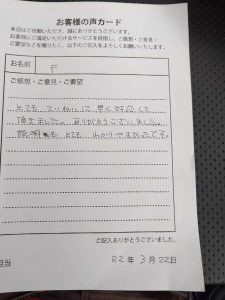 お客様の声カード
本日はご依頼いただき、誠にありがとうございます。
お客様にご満足いただけるサービスを目指し、ご感想・ご意見・
ご要望などを賜りたく、以下のご記入をよろしくお願いいたします。
お名前 F
ご感想・ご意見・ご要望
とても ていねいに 早く 対応して
頂きました。ありがとうございました。
説明も とても わかりやすかったです。
ご記入ありがとうございました。
担当
R2年 3月 22日